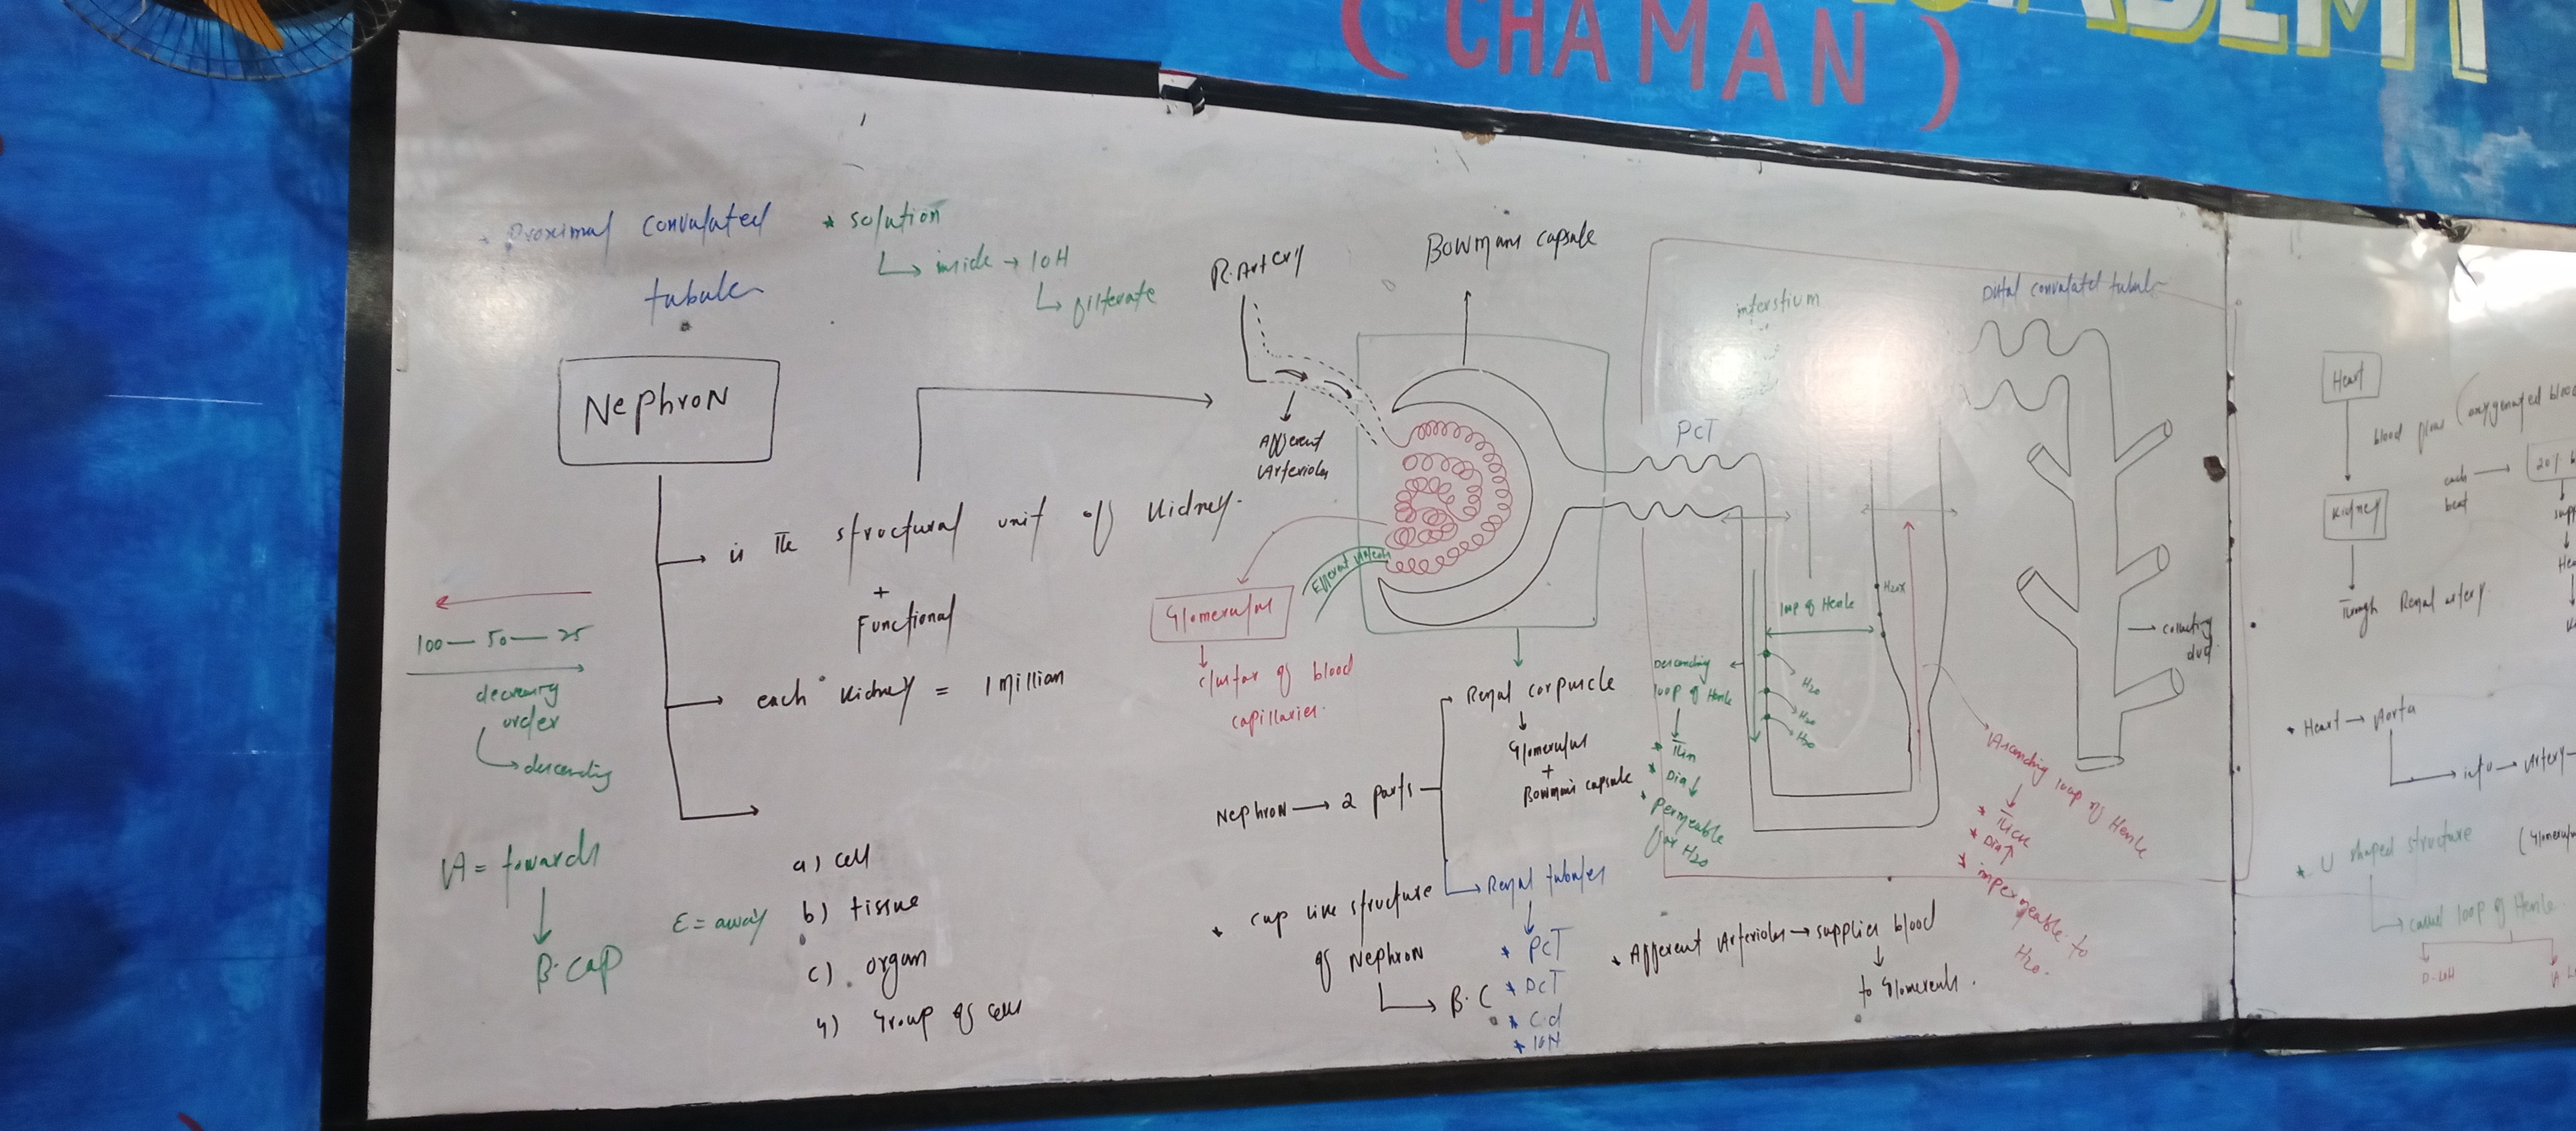 (CHAMAN)
Proximal convulated
tubule
* solution
inside → LOH
filterate
R.Artery
Bowmans capsule
interstium
Distal convulated tubule
Nephron
Afferent
Arterioles
PCT
is the structural unit of kidney.
+
Functional
each kidney = 1 millian
100 — 50 — 25
decreasing
order
descending
A = towards
B.cap
E = away
a) cell
b) tissue
c) organ
4) Group of cells
Efferent
Glomerulus
cluster of blood
capillaries.
Renal corpuscle
Glomerulus
+
Bowmans capsule
Nephron → 2 parts
Renal tubules
* PCT
* DCT
* Cd
* LOH
* cup like structure
of Nephron
B.C
loop of Henle
Descending
loop of Henle
* Thin
* Dia↓
* permeable
for H2o
H2o
H2o
H2o
H2oX
Ascending loop of Henle
* Thick
* Dia↑
* impermeable to
H2o.
collecting
duct
* Afferent Arterioles → supplies blood
to Glomerulus.
Heart
blood flow (oxygenated blood
each
beat
20%
Kidney
Through Renal artery
* Heart → Aorta
into → Artery
* U shaped structure
called loop of Henle
D-LOH